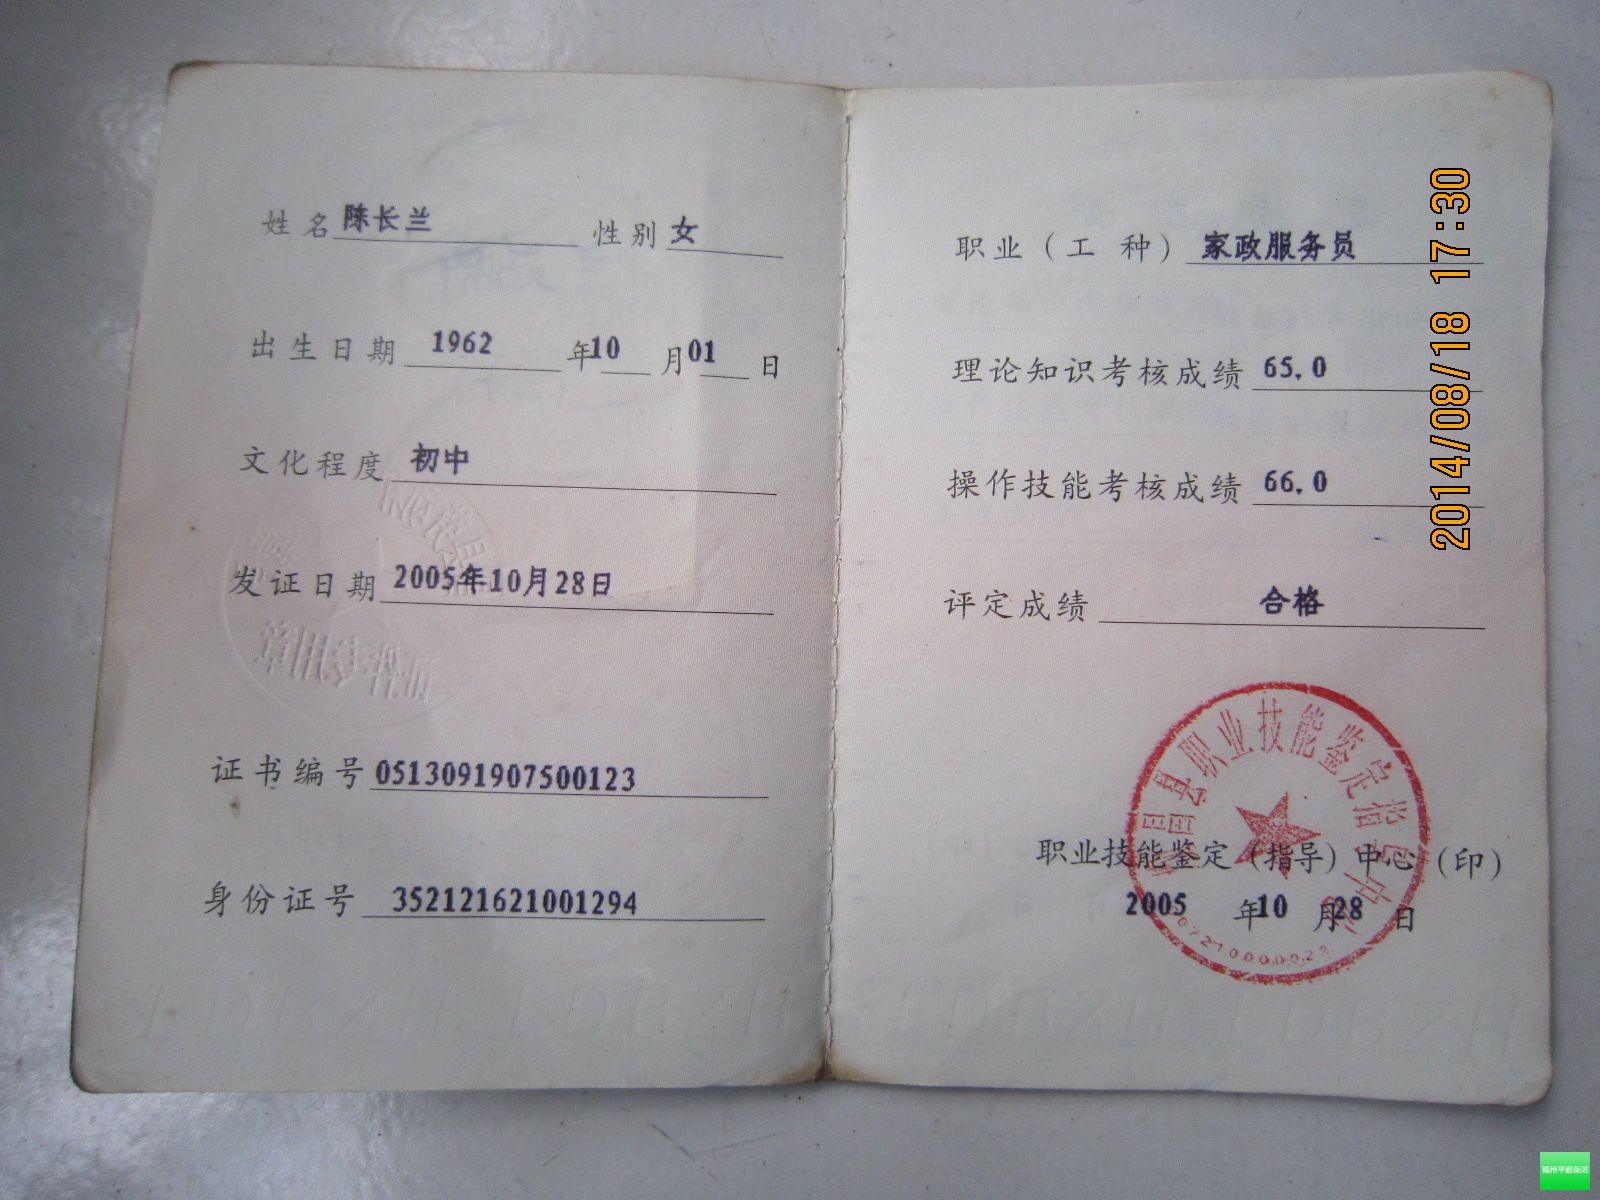 姓名 陈长兰 性别 女
出生日期 1962 年 10 月 01 日
文化程度 初中
发证日期 2005年10月28日
证书编号 0513091907500123
身份证号 352121621001294
职业（工 种） 家政服务员
理论知识考核成绩 65.0
操作技能考核成绩 66.0
评定成绩 合格
县职业技能鉴定指导中心
职业技能鉴定（指导）中心（印）
2005 年 10 月 28 日
2014/08/18 17:30
证件专用章
福州平姐保洁